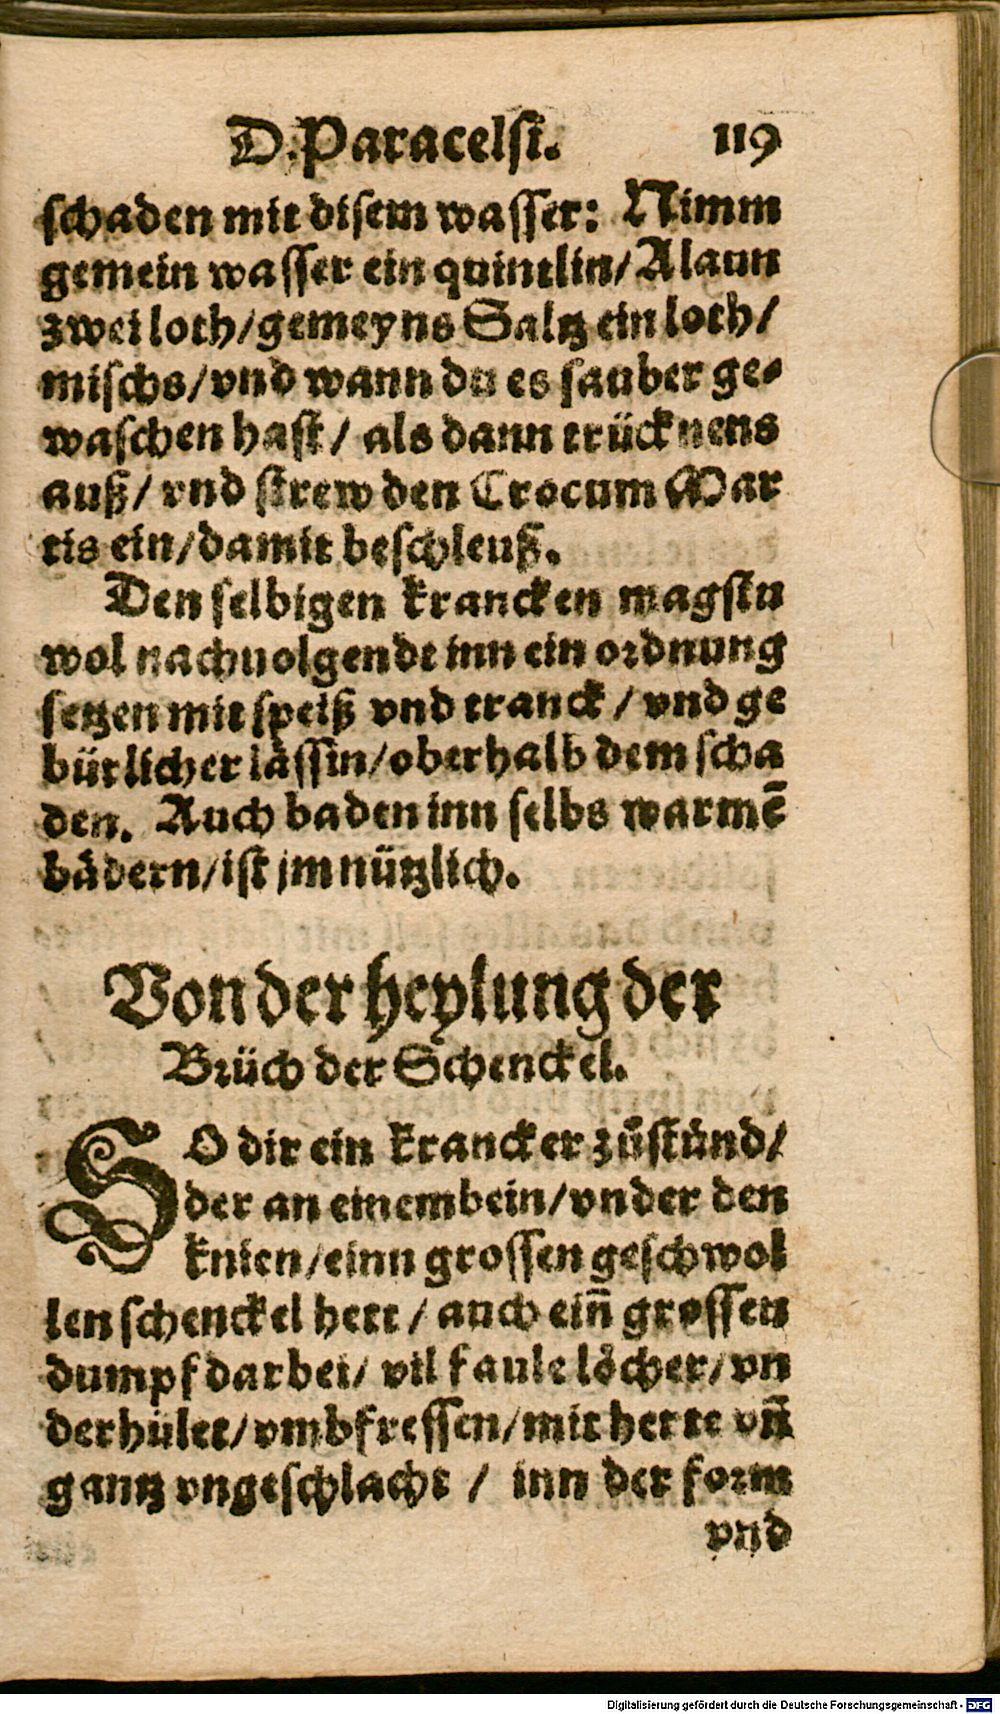 D. Paracelsi. 119
schaden mit disem wasser: Nimm
gemein wasser ein quintlin/ Alaun
zwei loth/ gemeyns Saltz ein loth/
mischs/ vnd wann du es sauber ge-
waschen hast/ als dann trücknens
auß/ vnd strew den Crocum Mar
tis ein/ damit beschleuß.
Den selbigen krancken magstu
wol nachuolgende inn ein ordnung
setzen mit speiß vnd tranck/ vnd ge
bürlicher lässin/ oberhalb dem scha
den. Auch baden inn selbs warmē
bädern/ ist jm nützlich.
Von der heylung der
Brüch der Schenckel.
SO dir ein krancker zůstünd/
der an einem bein/ vnder den
knien/ einn grossen geschwol
len schenckel hett/ auch ein̄ grossen
dumpf darbei/ vil faule löcher/ vn
derhület/ vmbfressen/ mit herte vn̄
gantz vngeschlacht/ inn der form
vnd
Digitalisierung gefördert durch die Deutsche Forschungsgemeinschaft - DFG